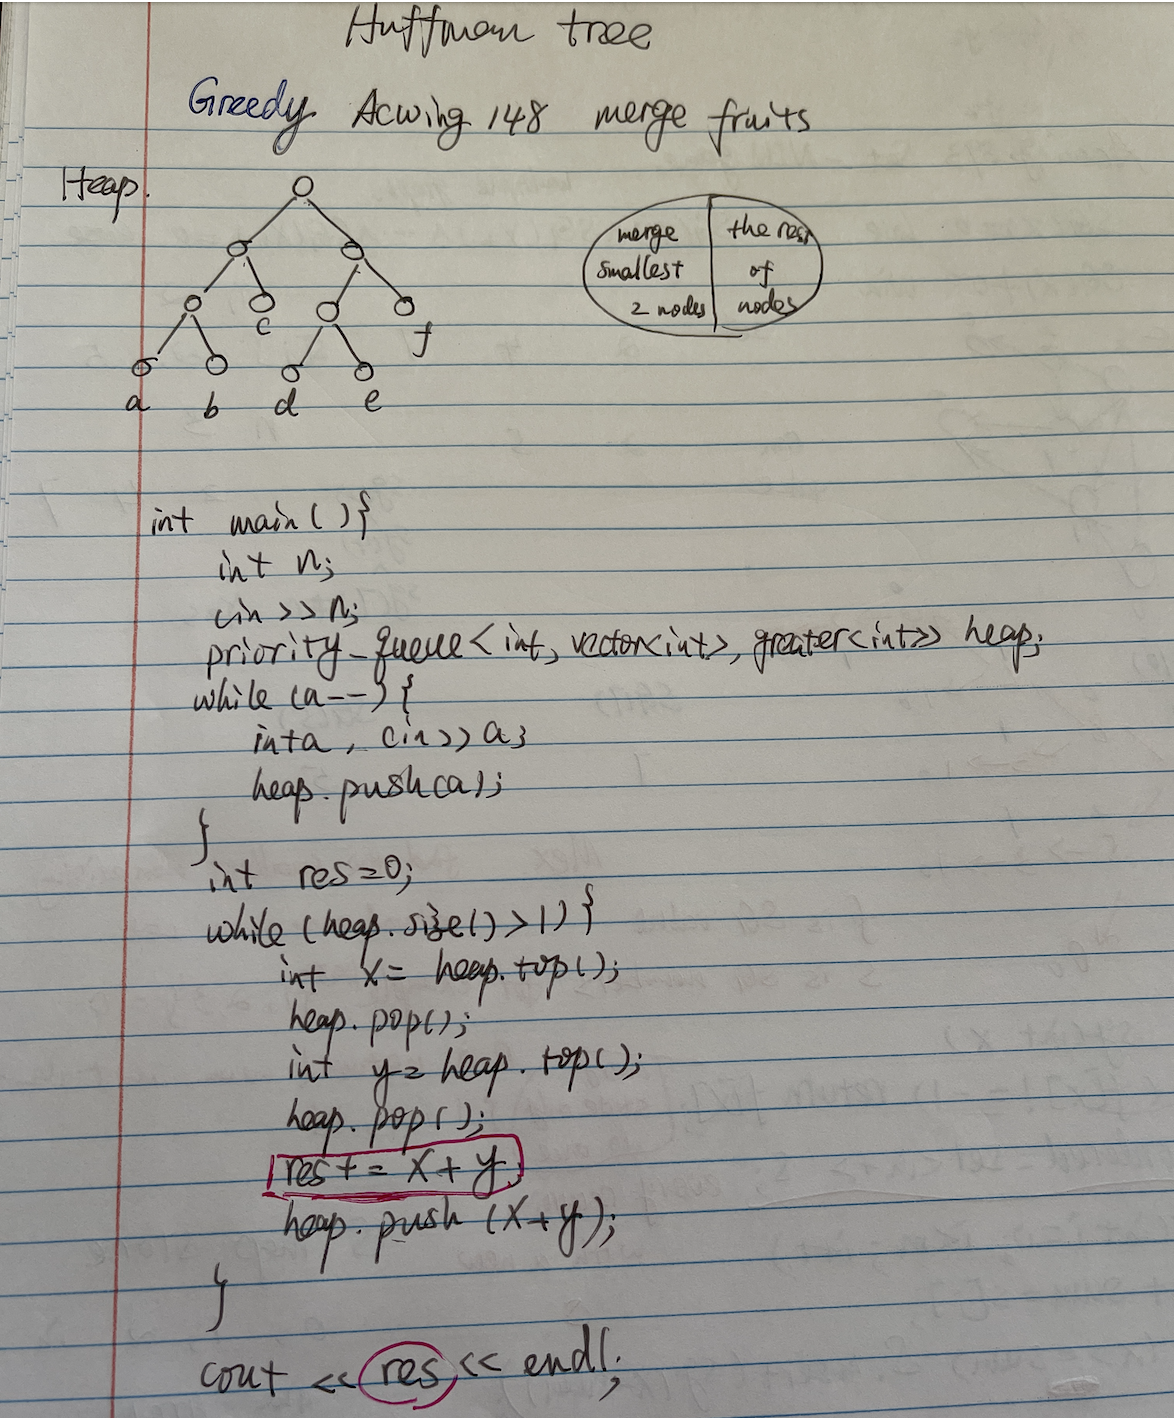 Huffman tree
Greedy Acwing 148 merge fruits
Heap.
merge the rest
smallest of
2 nodes nodes
c
f
a b d e
int main(){
int n;
cin>>n;
priority_queue<int, vector<int>, greater<int>> heap;
while (a--){
int a, cin>>a;
heap.push(a);
}
int res=0;
while (heap.size()>1){
int x= heap.top();
heap.pop();
int y= heap.top();
heap.pop();
res+=x+y
heap.push (x+y);
}
cout << res << endl;